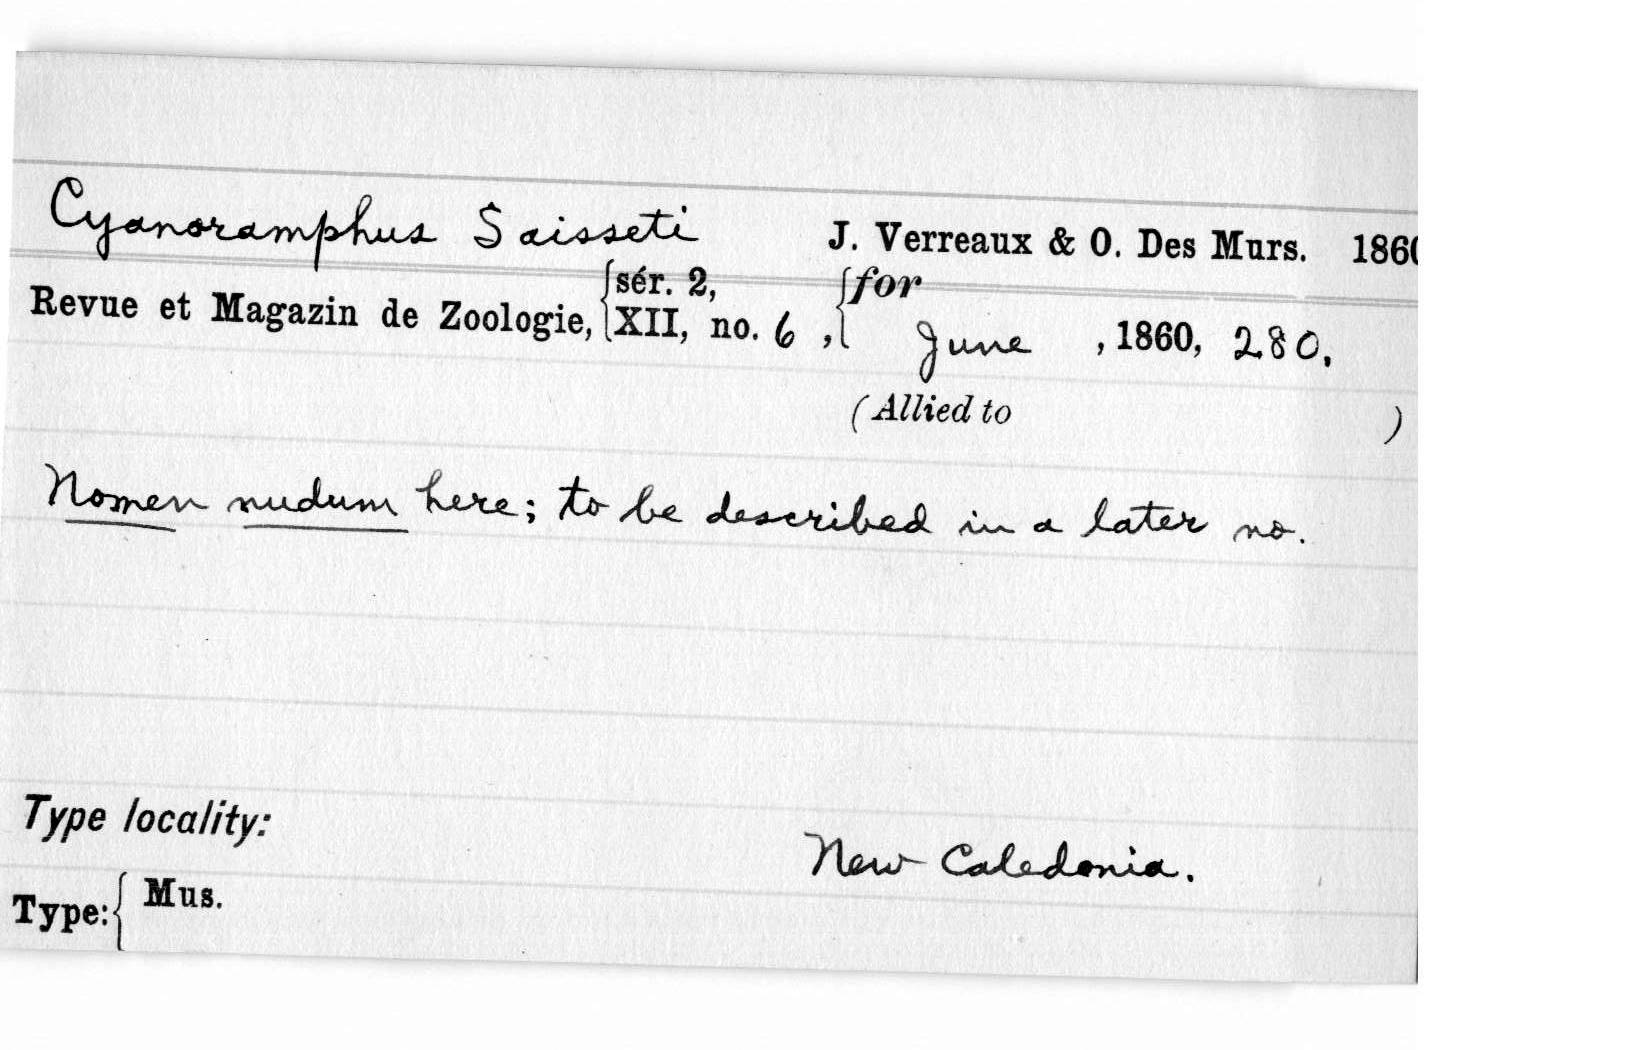 Cyanoramphus Saisseti J. Verreaux & O. Des Murs. 1860
Revue et Magazin de Zoologie, {sér. 2, XII, no. 6, {for June, 1860, 280.
(Allied to )
Nomen nudum here; to be described in a later no.
Type locality: New Caledonia.
Type: { Mus.